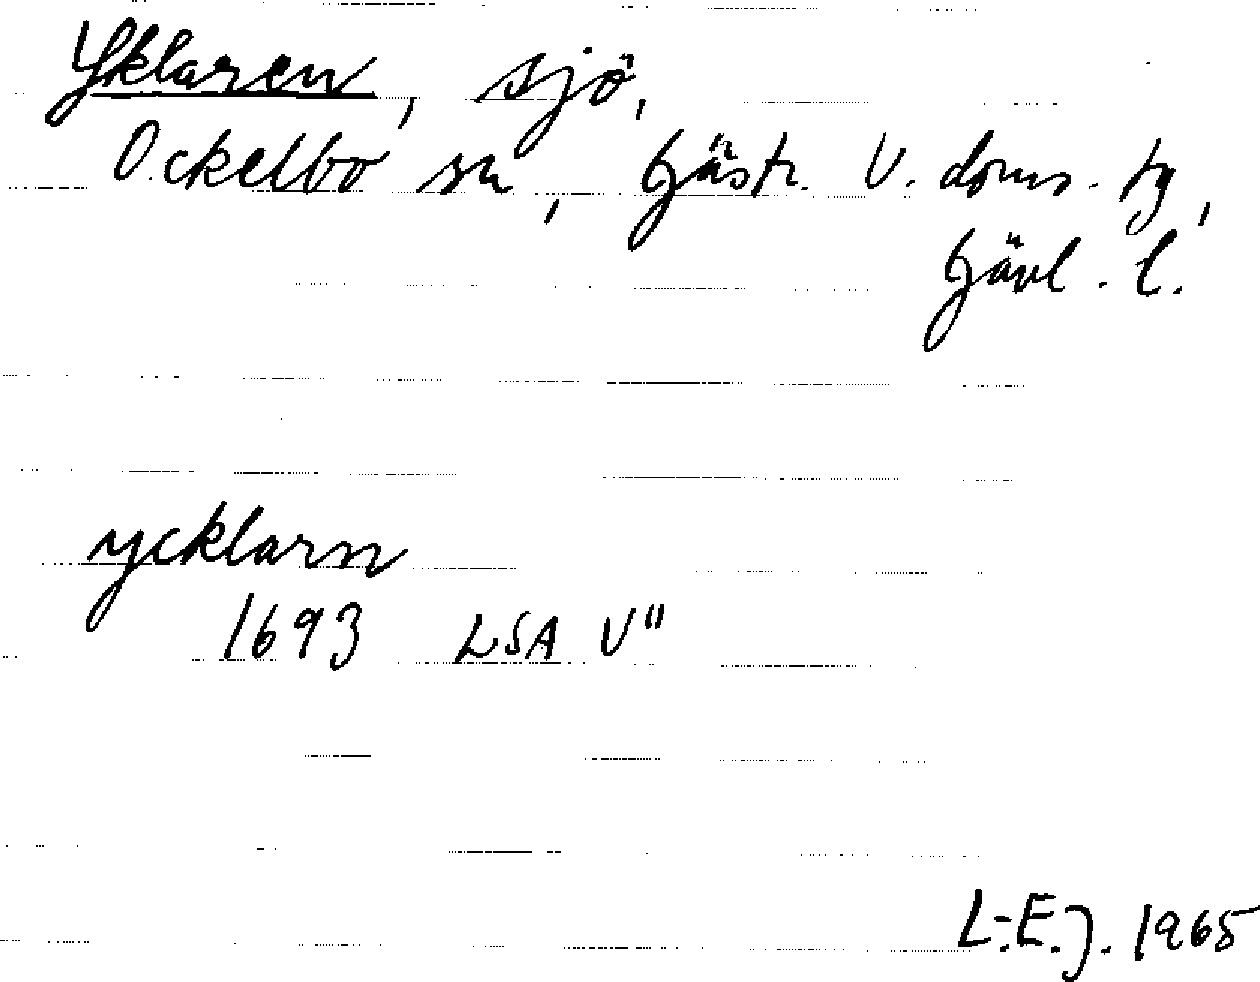 Yklaren, sjö,
Ockelbo sn, Gästr. V. doms. tg,
Gävl. l.
ycklarn
1693 LSA V"
L.-E.J. 1965